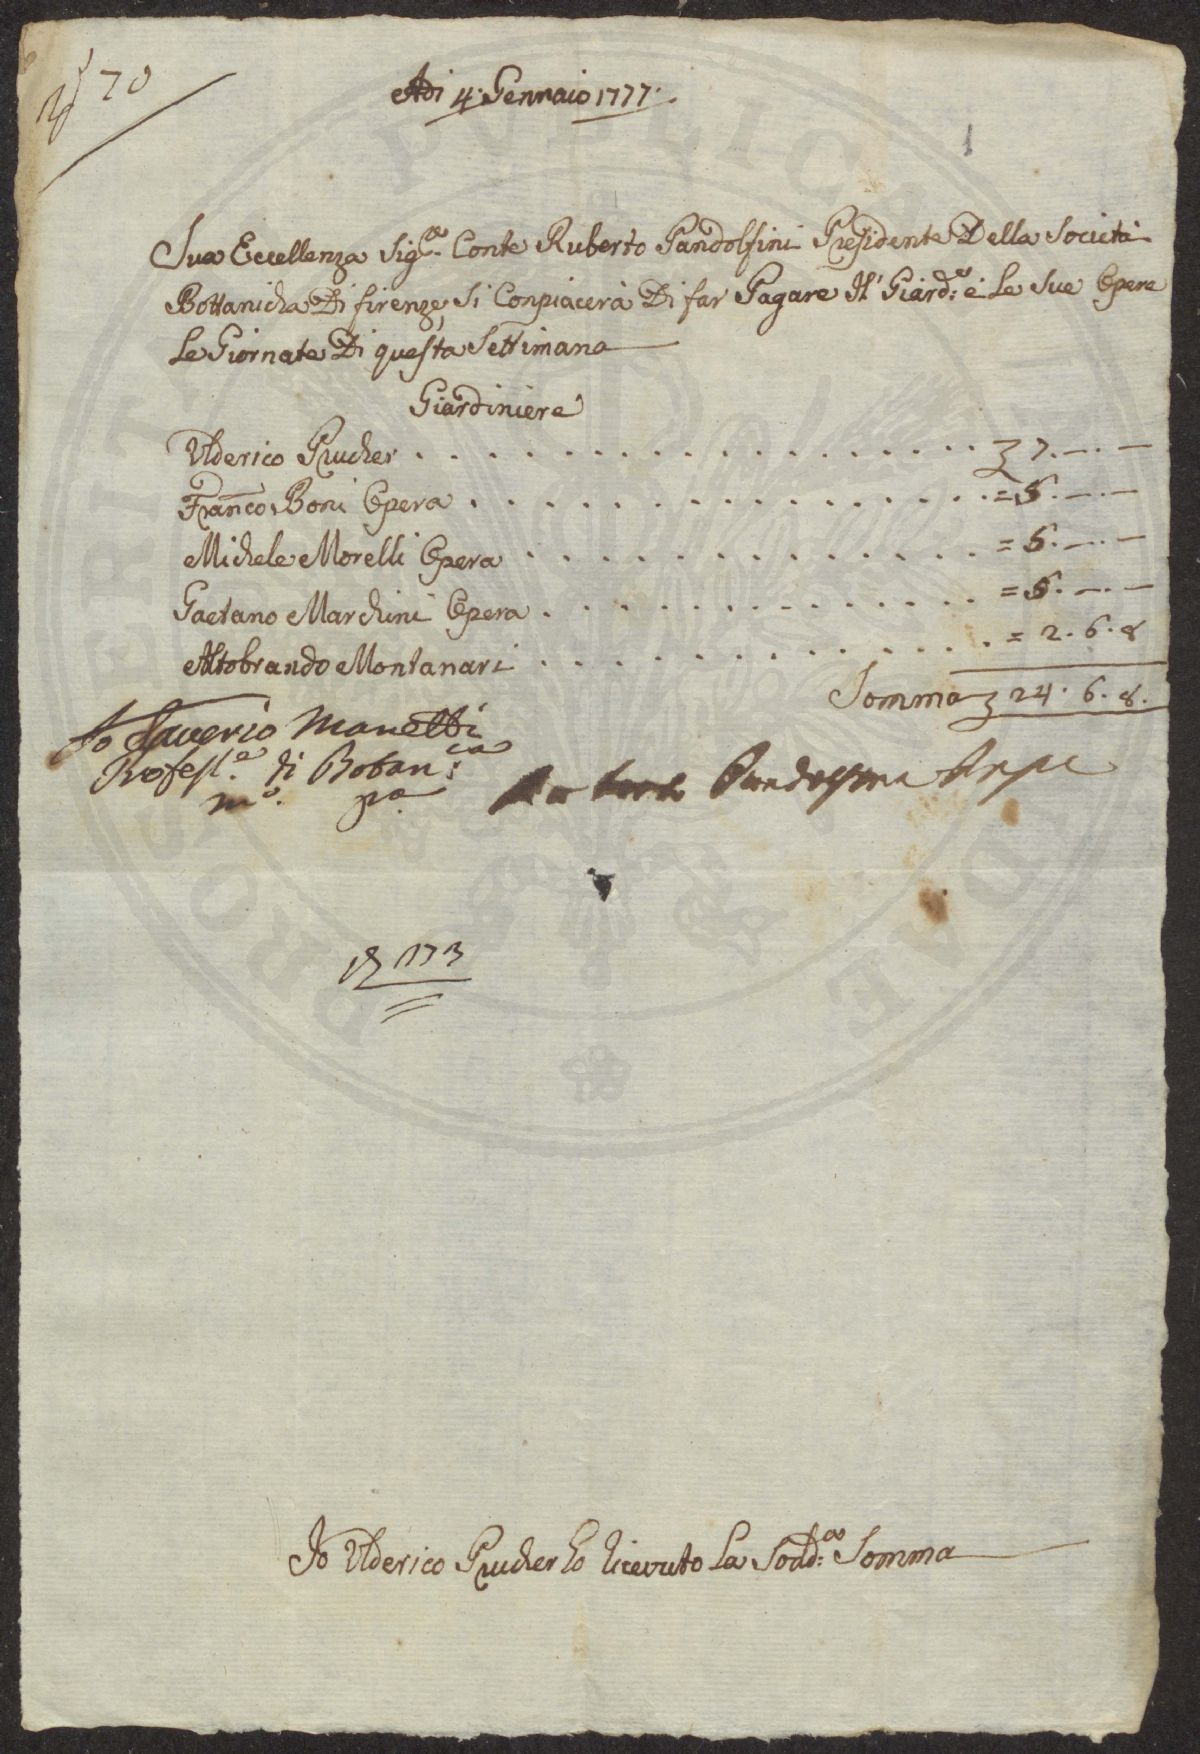 70
Adi 4. Gennaio 1777.
1
Sua Eccellenza Sig.re Conte Ruberto Pandolfini Presidente Della Società
Bottanicha Di firenze, Si Conpiacerà Di far Pagare Il' Giard:e è Le Sue Opere
Le Giornate Di questa Settimana
Giardiniere
Ulderico Prucher . . . . . . . . . . . . . . . . . . 7. — . —
Franco Boni Opera . . . . . . . . . . . . . . . . = 5. — . —
Michele Morelli Opera . . . . . . . . . . . . . . = 5. — . —
Gaetano Marchini Opera . . . . . . . . . . . . . = 5. — . —
Altobrando Montanari . . . . . . . . . . . . . . = 2. 6. 8
Somma 24. 6. 8.
Io Saverio Manetti
Profess.e di Botan:ca
m.o pa
Pandolfini
173
Io Ulderico Prucher ho ricevuto La Sodd:a Somma
PUBLICAE
PROSPERITATI